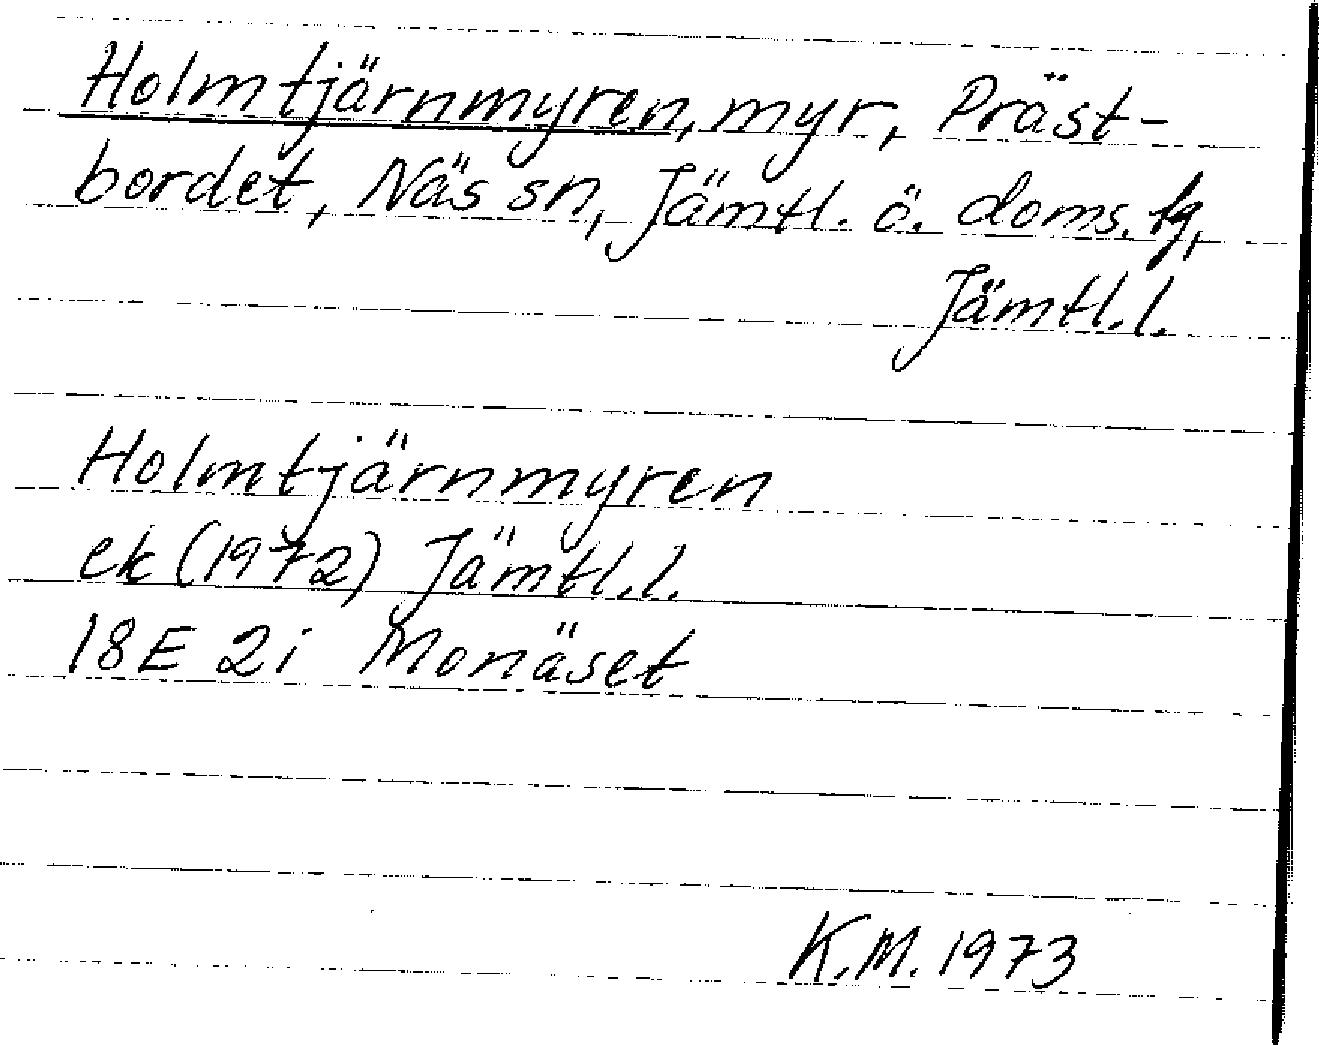 Holmtjärnmyren, myr, Präst-
bordet, Näs sn, Jämtl. ö. doms. lg,
Jämtl.l.
Holmtjärnmyren
ek (1972) Jämtl.l.
18E 2i Monäset
K.M. 1973